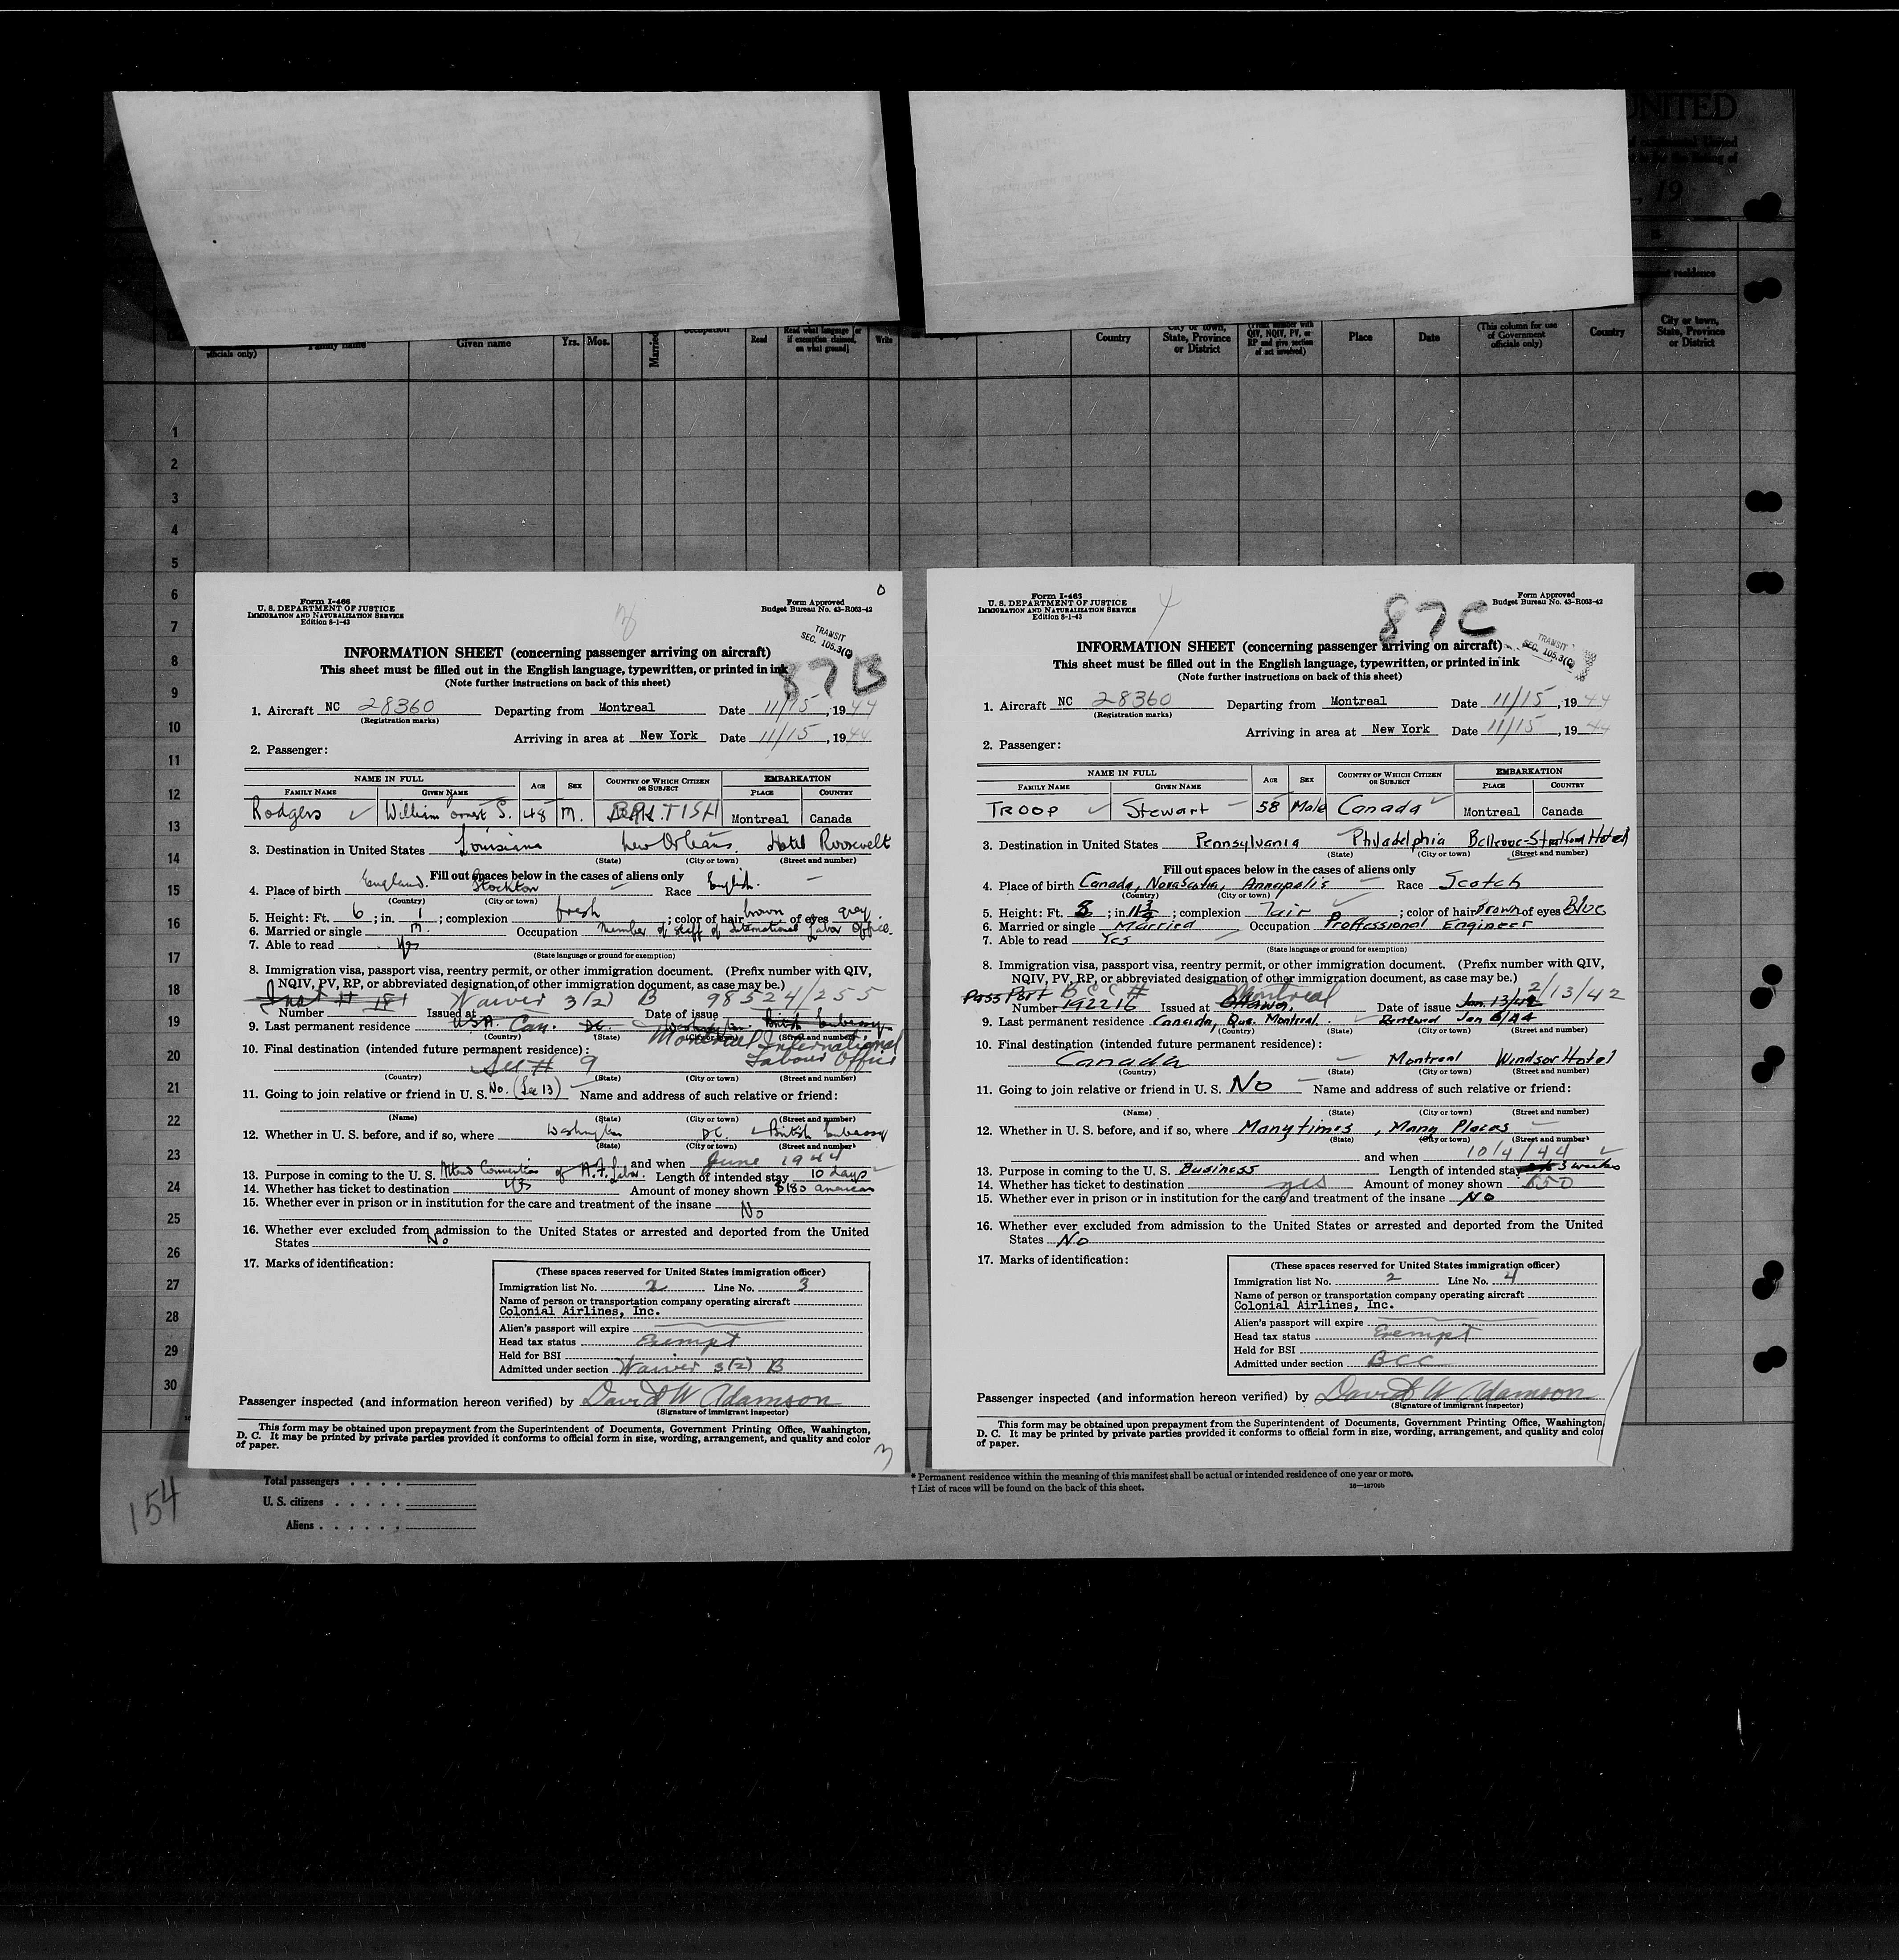 UNITED
, 19
residence
officials only)
Family name
Given name
Yrs. Mos.
Married
Occupation
Read
Read what language [or
if exemption claimed,
on what ground]
Write
Country
City or town,
State, Province
or District
QIV, NQIV, PV, or
RP and give section
of act involved)
Place
Date
(This column for use
of Government
officials only)
Country
City or town,
State, Province
or District
1
2
3
4
5
6
7
8
9
10
11
12
13
14
15
16
17
18
19
20
21
22
23
24
25
26
27
28
29
30
Form I-466
U. S. DEPARTMENT OF JUSTICE
IMMIGRATION AND NATURALIZATION SERVICE
Edition 8-1-43
Form Approved
Budget Bureau No. 43-R063-42
TRANSIT
SEC. 105.3(C)
87B
INFORMATION SHEET (concerning passenger arriving on aircraft)
This sheet must be filled out in the English language, typewritten, or printed in ink
(Note further instructions on back of this sheet)
1. Aircraft NC 28360 Departing from Montreal Date 11/15, 1944
(Registration marks)
Arriving in area at New York Date 11/15, 1944
2. Passenger:
NAME IN FULL AGE SEX COUNTRY OF WHICH CITIZEN OR SUBJECT EMBARKATION
FAMILY NAME GIVEN NAME PLACE COUNTRY
Rodgers William ornest S. 48 M. BRITISH Montreal Canada
3. Destination in United States Louisiana New Orleans. Hotel Roosevelt
(State) (City or town) (Street and number)
Fill out spaces below in the cases of aliens only
4. Place of birth England. Stockton Race English.
(Country) (City or town)
5. Height: Ft. 6 ; in. 1 ; complexion fresh ; color of hair brown of eyes grey.
6. Married or single M. Occupation Member of staff of International Labor Office.
7. Able to read Yes
(State language or ground for exemption)
8. Immigration visa, passport visa, reentry permit, or other immigration document. (Prefix number with QIV,
NQIV, PV, RP, or abbreviated designation of other immigration document, as case may be.)
Waiver 3(2) B 98524/255
Number Issued at Date of issue
9. Last permanent residence USA. Can. DC. Washington. British Embassy
(Country) (State) (City or town) (Street and number)
Montreal International
Labour Office
10. Final destination (intended future permanent residence):
See # 9
(Country) (State) (City or town) (Street and number)
11. Going to join relative or friend in U. S. No. (See 13) Name and address of such relative or friend:
(Name) (State) (City or town) (Street and number)
12. Whether in U. S. before, and if so, where Washington D.C. British Embassy
(State) (City or town) (Street and number)
and when June 1944
13. Purpose in coming to the U. S. Attend Convention of A.F. Labor. Length of intended stay 10 days
14. Whether has ticket to destination Yes Amount of money shown $180 american
15. Whether ever in prison or in institution for the care and treatment of the insane No
16. Whether ever excluded from admission to the United States or arrested and deported from the United
States No
17. Marks of identification:
(These spaces reserved for United States immigration officer)
Immigration list No. 2 Line No. 3
Name of person or transportation company operating aircraft
Colonial Airlines, Inc.
Alien's passport will expire
Head tax status Exempt
Held for BSI
Admitted under section Waiver 3(2) B
Passenger inspected (and information hereon verified) by David W Adamson
(Signature of immigrant inspector)
This form may be obtained upon prepayment from the Superintendent of Documents, Government Printing Office, Washington,
D. C. It may be printed by private parties provided it conforms to official form in size, wording, arrangement, and quality and color
of paper.
Form I-463
U. S. DEPARTMENT OF JUSTICE
IMMIGRATION AND NATURALIZATION SERVICE
Edition 8-1-43
87C
Form Approved
Budget Bureau No. 43-R063-42
TRANSIT
SEC. 105.3(C)
INFORMATION SHEET (concerning passenger arriving on aircraft)
This sheet must be filled out in the English language, typewritten, or printed in ink
(Note further instructions on back of this sheet)
1. Aircraft NC 28360 Departing from Montreal Date 11/15, 1944
(Registration marks)
Arriving in area at New York Date 11/15, 1944
2. Passenger:
NAME IN FULL AGE SEX COUNTRY OF WHICH CITIZEN OR SUBJECT EMBARKATION
FAMILY NAME GIVEN NAME PLACE COUNTRY
TROOP Stewart 58 Male Canada Montreal Canada
3. Destination in United States Pennsylvania Philadelphia Bellevue-Stratford Hotel
(State) (City or town) (Street and number)
Fill out spaces below in the cases of aliens only
4. Place of birth Canada, Nova Scotia, Annapolis Race Scotch
(Country) (City or town)
5. Height: Ft. ; in. 11 3/4 ; complexion Fair ; color of hair Brown of eyes Blue
6. Married or single Married Occupation Proffessional Engineer
7. Able to read Yes
(State language or ground for exemption)
8. Immigration visa, passport visa, reentry permit, or other immigration document. (Prefix number with QIV,
NQIV, PV, RP, or abbreviated designation of other immigration document, as case may be.)
Pass Port B C C # Montreal 2/13/42
Number 192216 Issued at Ottawa, Date of issue Jan 13/42
9. Last permanent residence Canada, Que. Montreal. Renewed Jan 8/44
(Country) (State) (City or town) (Street and number)
10. Final destination (intended future permanent residence):
Canada Montreal Windsor Hotel
(Country) (State) (City or town) (Street and number)
11. Going to join relative or friend in U. S. No Name and address of such relative or friend:
(Name) (State) (City or town) (Street and number)
12. Whether in U. S. before, and if so, where Many times, Many Places
(State) (City or town) (Street and number)
and when 10/4/44
13. Purpose in coming to the U. S. Business Length of intended stay 3 weeks
14. Whether has ticket to destination yes Amount of money shown $50
15. Whether ever in prison or in institution for the care and treatment of the insane No
16. Whether ever excluded from admission to the United States or arrested and deported from the United
States No
17. Marks of identification:
(These spaces reserved for United States immigration officer)
Immigration list No. 2 Line No. 4
Name of person or transportation company operating aircraft
Colonial Airlines, Inc.
Alien's passport will expire
Head tax status Exempt
Held for BSI
Admitted under section BCC
Passenger inspected (and information hereon verified) by David W Adamson
(Signature of immigrant inspector)
This form may be obtained upon prepayment from the Superintendent of Documents, Government Printing Office, Washington,
D. C. It may be printed by private parties provided it conforms to official form in size, wording, arrangement, and quality and color
of paper.
154
Total passengers
U. S. citizens
Aliens
* Permanent residence within the meaning of this manifest shall be actual or intended residence of one year or more.
† List of races will be found on the back of this sheet.
16—18709b